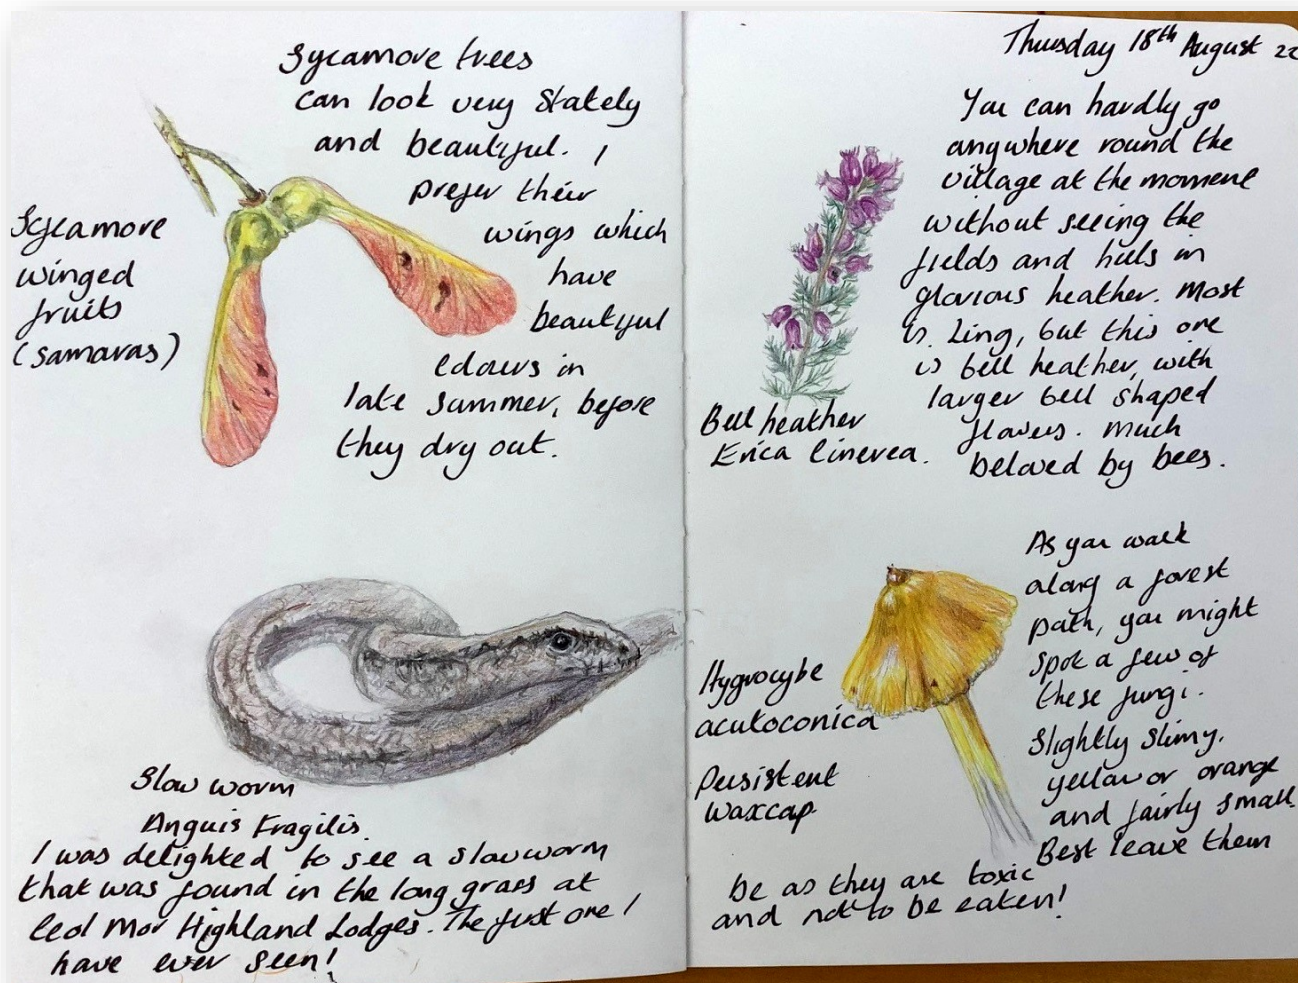 Sycamore trees
can look very stately
and beautiful. I
prefer their
wings which
have
beautiful
colours in
late summer, before
they dry out.
Sycamore
winged
fruits
(samaras)
Slow worm
Anguis Fragilis.
I was delighted to see a slow worm
that was found in the long grass at
Ceol Mor Highland Lodges. The first one I
have ever seen!
Thursday 18th August 22
You can hardly go
anywhere round the
village at the moment
without seeing the
fields and hills in
glorious heather. Most
is Ling, but this one
is bell heather, with
larger bell shaped
flowers. Much
beloved by bees.
Bell heather
Erica Cinerea.
As you walk
along a forest
path, you might
spot a few of
these fungi.
Slightly slimy,
yellow or orange
and fairly small.
Best leave them
be as they are toxic
and not to be eaten!
Hygrocybe
acutoconica
Persistent
waxcap